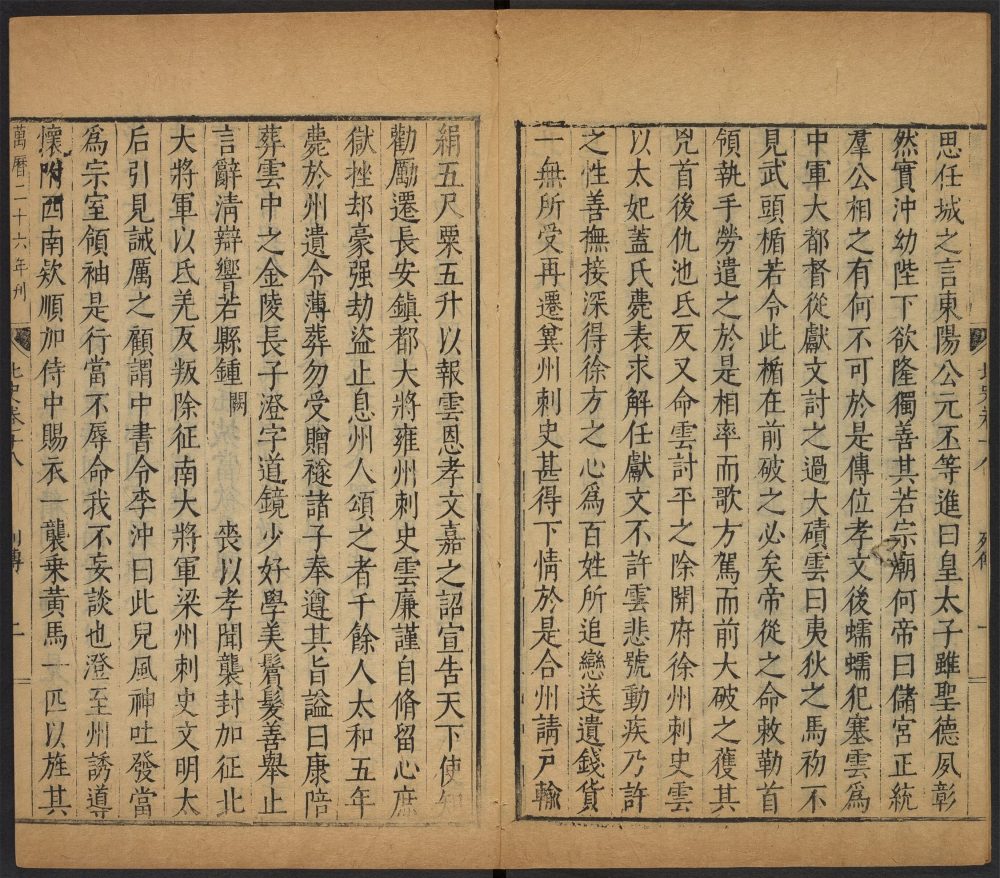 思任城之言東陽公元丕等進曰皇太子雖聖德夙彰
然實沖幼陛下欲隆獨善其若宗廟何帝曰儲宮正統
羣公相之有何不可於是傳位孝文後蠕蠕犯塞雲爲
中軍大都督從獻文討之過大磧雲曰夷狄之馬初不
見武頭楯若令此楯在前破之必矣帝從之命敕勒首
領執手勞遣之於是相率而歌方駕而前大破之獲其
兇首後仇池氐反又命雲討平之除開府徐州刺史雲
以太妃蓋氏薨表求解任獻文不許雲悲號動疾乃許
之性善撫接深得徐方之心爲百姓所追戀送遺錢貨
一無所受再遷冀州刺史甚得下情於是合州請戸輸
絹五尺粟五升以報雲恩孝文嘉之詔宣告天下使知
勸勵遷長安鎮都大將雍州刺史雲廉謹自脩留心庶
獄挫却豪强劫盜止息州人頌之者千餘人太和五年
薨於州遺令薄葬勿受贈襚諸子奉遵其旨謚曰康陪
葬雲中之金陵長子澄字道鏡少好學美鬢髮善舉止
言辭清辯響若縣鍾闕 喪以孝聞襲封加征北
大將軍以氐羌反叛除征南大將軍梁州刺史文明太
后引見誡厲之顧謂中書令李沖曰此兒風神吐發當
爲宗室領袖是行當不辱命我不妄談也澄至州誘導
懷附西南欵順加侍中賜衣一襲乘黃馬一匹以旌其
萬曆二十六年刊
北史卷十八
列傳
二